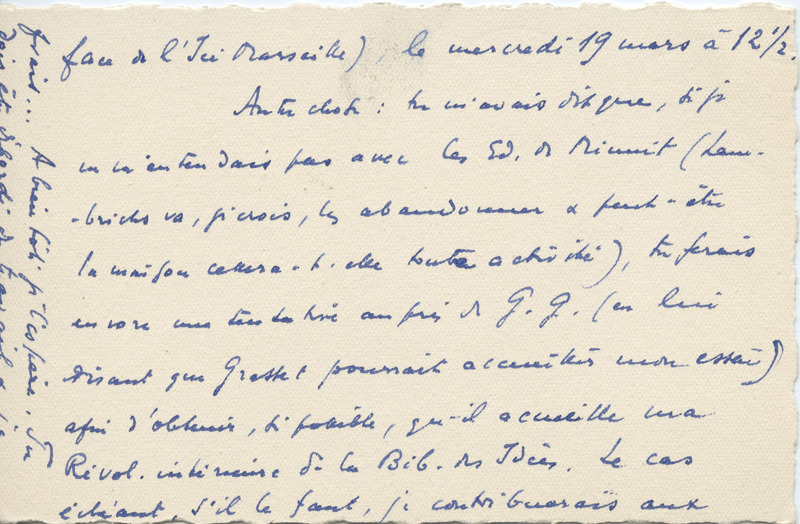 face de l'Ici Marseille), le mercredi 19 mars à 12 1/2.
Autre chose : tu m'avais dit que, si je
ne m'entendais pas avec les Ed. de Minuit (Lam-
-brichs va, je crois, les abandonner & peut-être
la maison cessera-t-elle toute activité), tu ferais
encore une tentative auprès de G. G. (en lui
disant que Grasset pourrait accueillir mon essai)
afin d'obtenir, si possible, qu'il accueille ma
Révol. intérieure ds la Bib. des Idées. Le cas
échéant, s'il le faut, je contribuerais aux
frais... A bientôt j'espère. Tu
dois être débordé de travail &